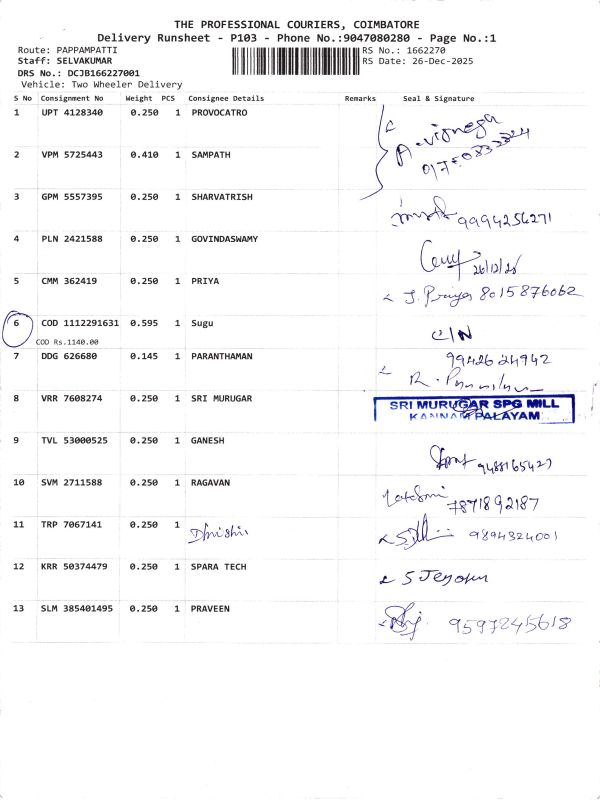 THE PROFESSIONAL COURIERS, COIMBATORE
Delivery Runsheet - P103 - Phone No.:9047080280 - Page No.:1
Route: PAPPAMPATTI RS No.: 1662270
Staff: SELVAKUMAR RS Date: 26-Dec-2025
DRS No.: DCJB166227001
Vehicle: Two Wheeler Delivery
S No Consignment No Weight PCS Consignee Details Remarks Seal & Signature
1 UPT 4128340 0.250 1 PROVOCATRO
2 VPM 5725443 0.410 1 SAMPATH
3 GPM 5557395 0.250 1 SHARVATRISH 9994256271
4 PLN 2421588 0.250 1 GOVINDASWAMY
26/12/25
5 CMM 362419 0.250 1 PRIYA J. Priya 8015876062
6 COD 1112291631 0.595 1 Sugu C/N
COD Rs.1140.00
7 DDG 626680 0.145 1 PARANTHAMAN 9942624942
8 VRR 7608274 0.250 1 SRI MURUGAR SRI MURUGAR SPG MILL
KANNAMPALAYAM
9 TVL 53000525 0.250 1 GANESH 9488165427
10 SVM 2711588 0.250 1 RAGAVAN 7871892187
11 TRP 7067141 0.250 1 9894324001
12 KRR 50374479 0.250 1 SPARA TECH
13 SLM 385401495 0.250 1 PRAVEEN 9597245618